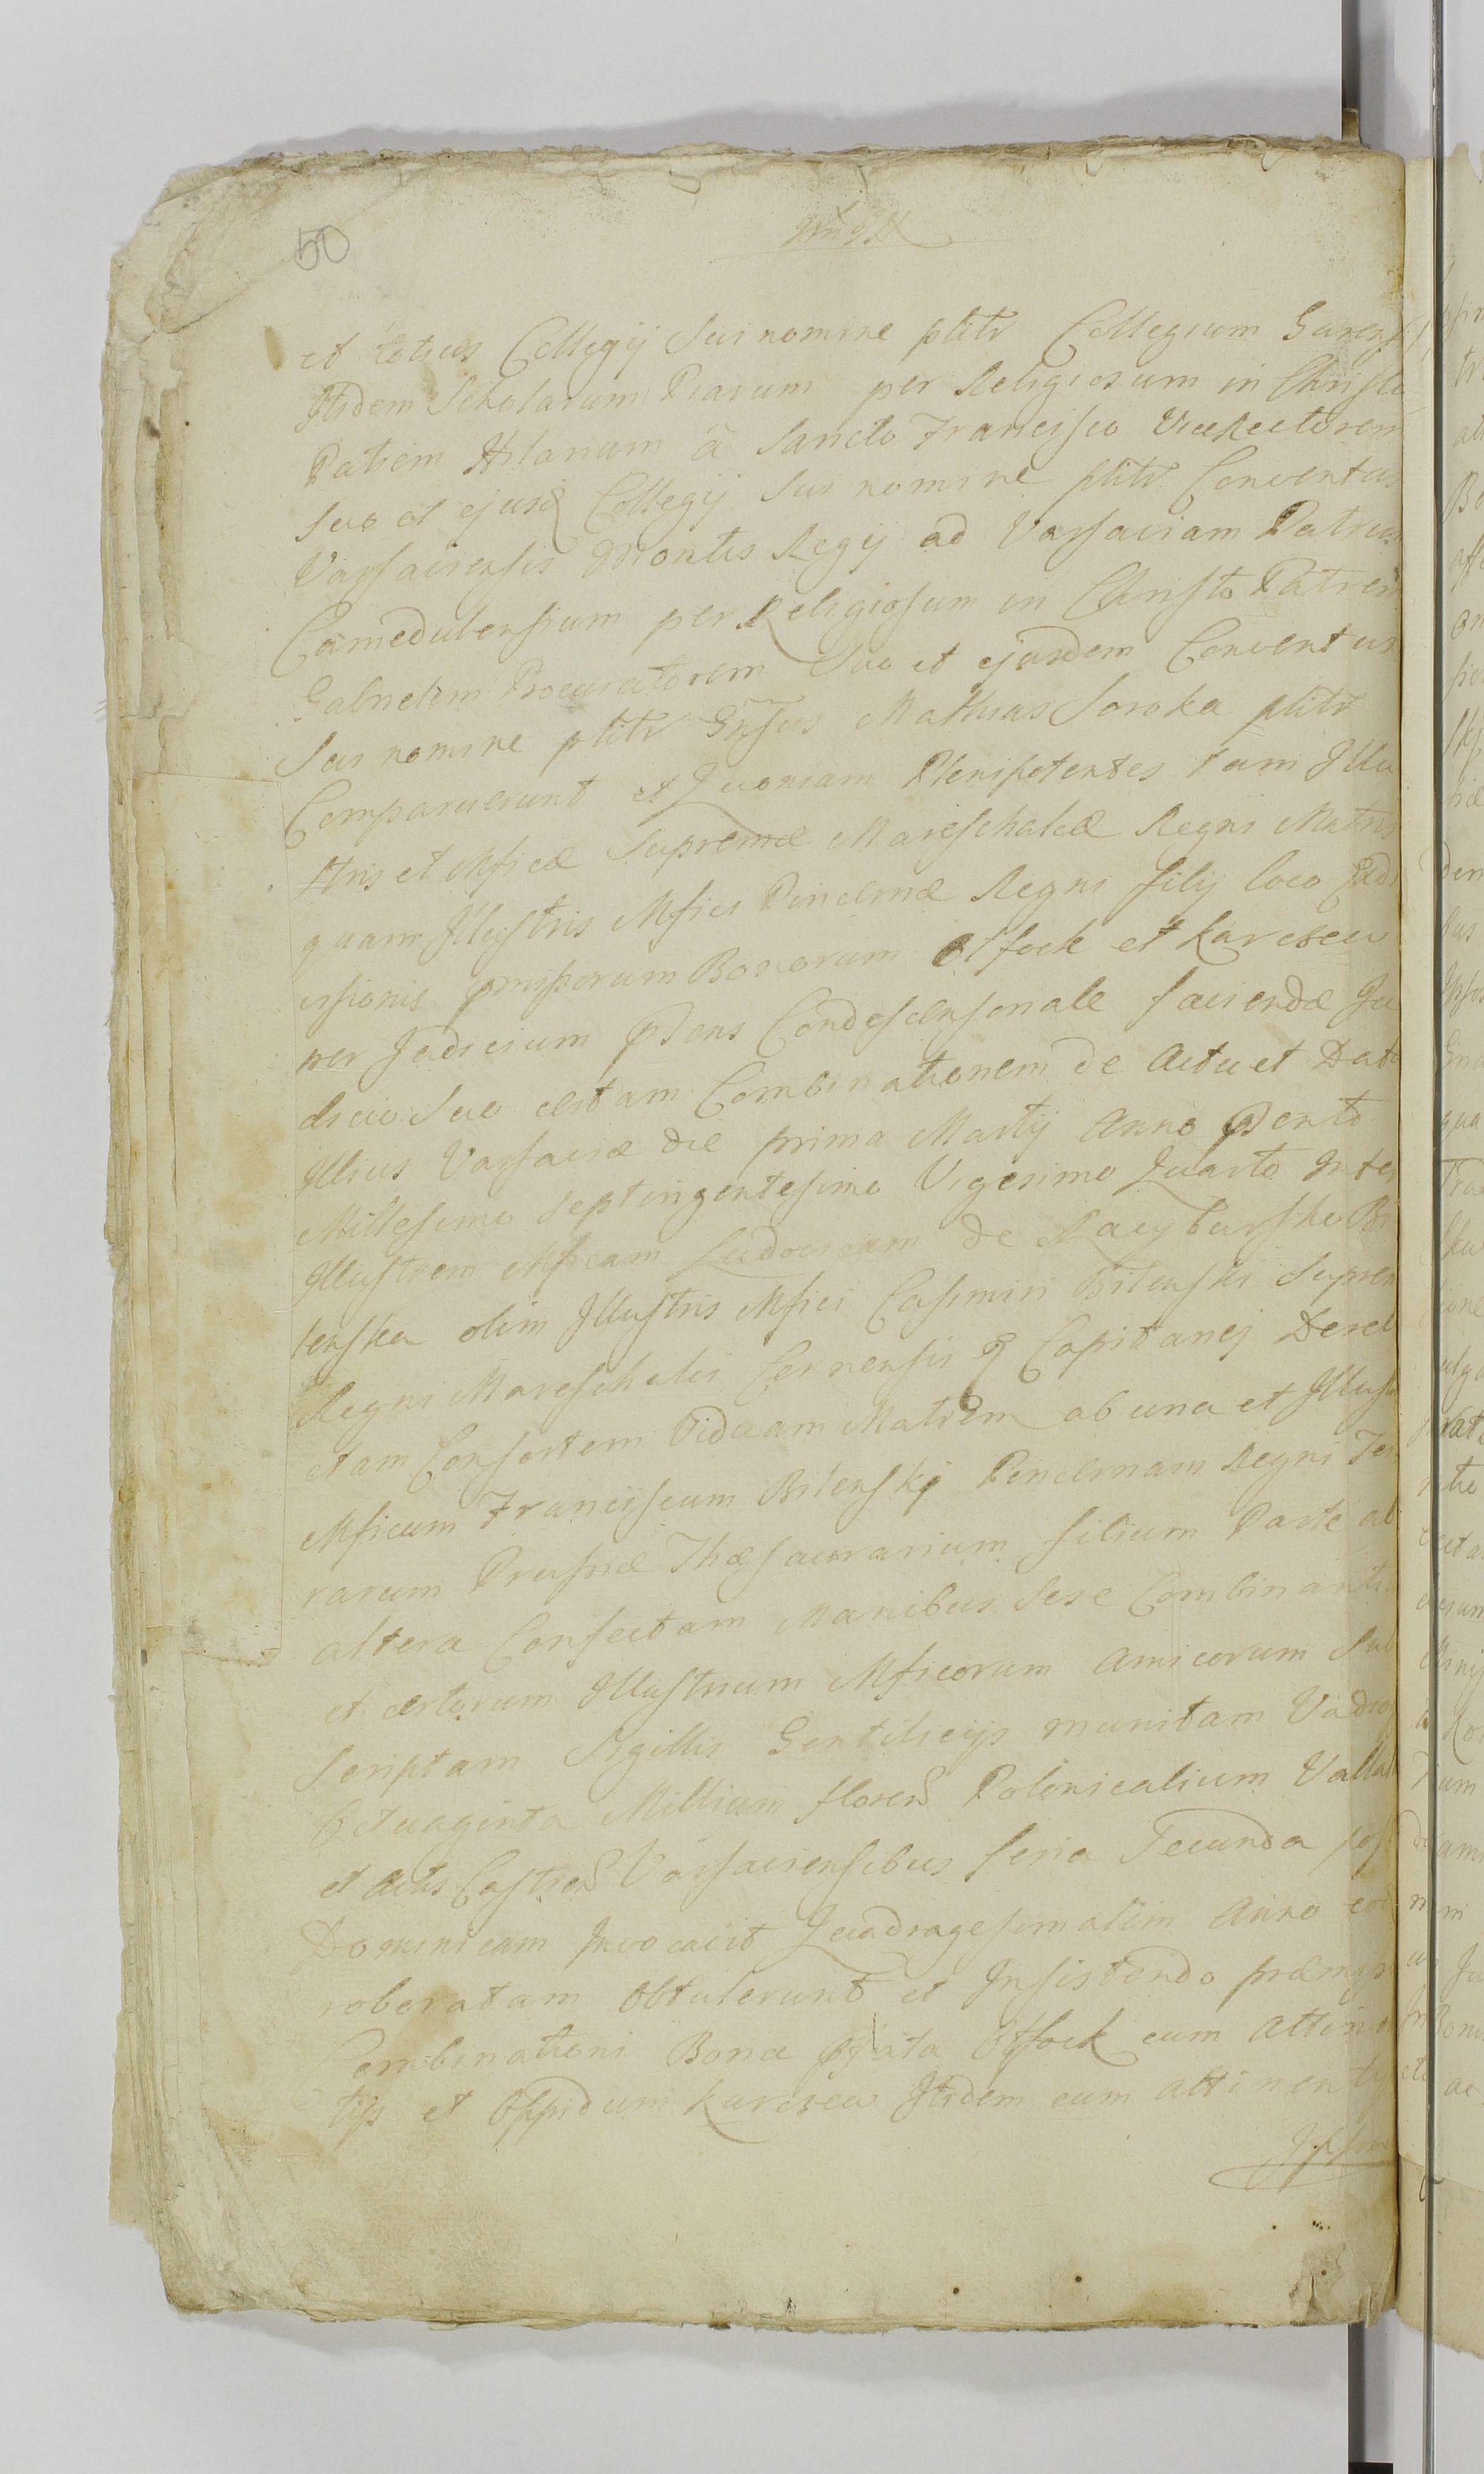 50
et totius Collegij sui nomine ptitr Collegium Gurens
Itidem Scholarum Piarum per Religiosum in Christo
Patrem Hilarium à Sancto Francisco Vicerectorem
suo et ejusq Collegij sui nomine ptitr Conventus
Varsaviensis Montis Regij ad Varsaviam Patrum
Camedulensium per Religiosum in Christo Patrem
Gabrielem Procuratorem suo et ejusdem Conventus
sui nomine ptitr Gnsus Mathias Soroka ptitr
Comparuerunt et Quoniam Plenipotentes tam Illu
stris et Mficæ Supremæ Mareschalcæ Regni Matris
quam Illustris Mfici Pincernæ Regni filij loco
issionis pmissorum Bonorum Otfock et Karczew
per Judicium Pdens Condescensonale faciendæ Ju
dicio suo certam Combinationem de Actu et Dato
Illius Varsaviæ die prima Martij Anno Pdenti
Millesimo Septingentesimo Vigesimo Quarto Inter
Illustrem Mficam Ludovicam de Bi
lenska olim Illustris Mfici Casimiri Bilenski Suprem
Regni Mareschalci Cernensis q Capitanej Derel
ctam Consortem Viduam Matrem ab una et Illust
Mficum Franciscum Bilenskj Pincernam Regni Ter
rarum Prussiæ Thæsaurarium filium Parte ab
altera Confectam Manibus sese Combinantiu
et certorum Illustrium Mficorum Amicorum Sub
scriptam Sigillis Gentilicijs munitam Vadio
Octuaginta Millium floren Polonicalium Vallat
et Actis Castren Varsaviensibus feria Secunda pos
Dominicam Invocavit Quadragesimalem Anno
roboratam Obtulerunt et Insistendo præmiss
Combinationi Bona pfata Otfock cum Attinen
tijs et Oppidum Karczew Itidem cum attinentij